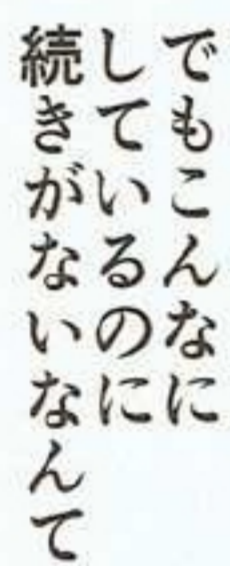 でもこんなに
しているのに
続きがないなんて